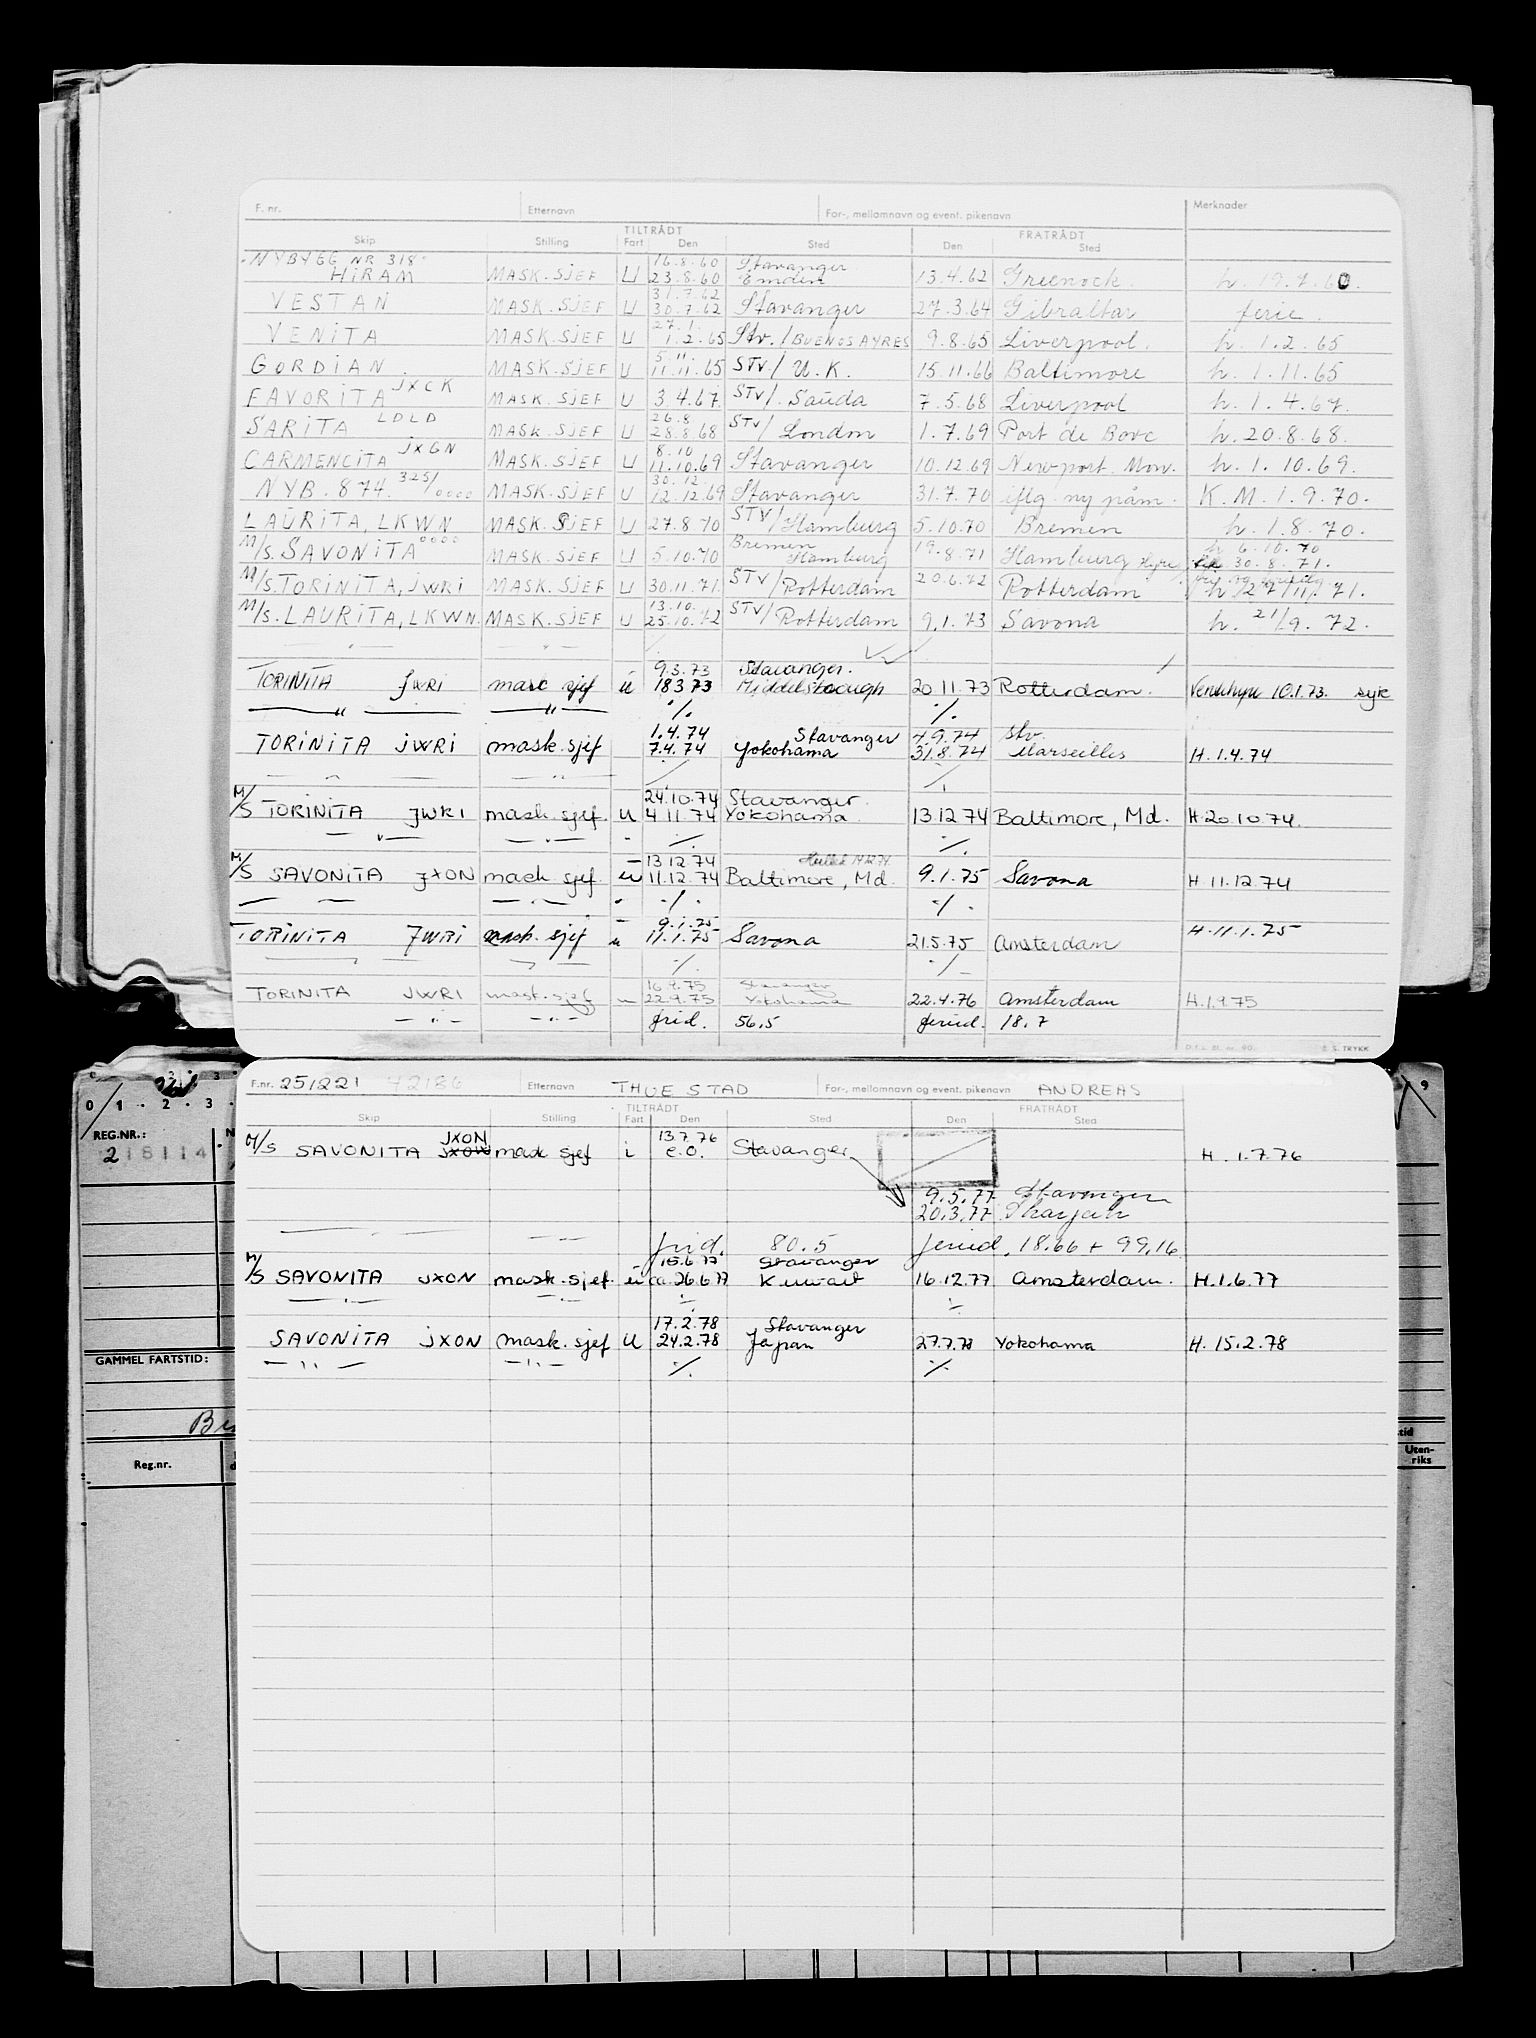 F. nr. Etternavn For-, mellomnavn og event. pikenavn Merknader
TILTRÅDT FRATRÅDT
Skip Stilling Fart Den Sted Den Sted
"NYBYGG NR 318" 16.8.60 Stavanger
HIRAM MASK.SJEF U 23.8.60 Emden 13.4.62 Greenock. h. 19.7.60.
31.7.62
VESTAN MASK.SJEF U 30.7.62 Stavanger 27.3.64 Gibraltar ferie.
27.1.
VENITA MASK.SJEF U 1.2.65 Stv./BUENOS AYRES 9.8.65 Liverpool. h. 1.2.65
5.11.
GORDIAN. MASK.SJEF U 11.11.65 STV/ U.K. 15.11.66 Baltimore h. 1.11.65
FAVORITA JXCK MASK.SJEF U 3.4.67. STV/. Sauda 7.5.68 Liverpool h. 1.4.67.
26.8
SARITA LDLD MASK.SJEF U 28.8.68 STV/ London 1.7.69 Port de Bouc h. 20.8.68.
8.10
CARMENCITA JXGN MASK.SJEF U 11.10.69 Stavanger 10.12.69 Newport. Mon. h. 1.10.69.
30.12
NYB. 874. 325/oooo MASK.SJEF U 12.12.69 Stavanger 31.7.70 iflg. ny påm. K.M. 1.9.70.
LAURITA, LKWN MASK.SJEF U 27.8.70 STV/Hamburg 5.10.70 Bremen h. 1.8.70.
Bremen h 6.10.70
M/S. SAVONITA oooo MASK.SJEF U 5.10.70 Hamburg 19.8.71 Hamburg Hyre 30.8.71.
M/S. TORINITA, JWRI MASK.SJEF U 30.11.71. STV/Rotterdam 20.6.72 Rotterdam h 27/11/71.
13.10.
M/S. LAURITA, LKWN. MASK.SJEF U 25.10.72 STV/Rotterdam 9.1.73 Savona h. 21/9.72.
9.3.73 Stavanger.
TORINITA JWRI mask sjef u 18.3.73 Middelsbough 20.11.73 Rotterdam. Ventehyre 10.1.73. syk
— " — — " — ./. ./.
1.4.74 Stavanger 4.9.74 Stv.
TORINITA JWRI mask.sjef 7.4.74 Yokohama 31.8.74 Marseilles H. 1.4.74
— " — — " — ./. ./.
24.10.74 Stavanger.
M/S TORINITA JWRI mask.sjef. u 4.11.74 Yokohama. 13.12.74 Baltimore, Md. H. 20.10.74.
— " — — " — ./. ./.
13.12.74
M/S SAVONITA JXON mask sjef. u 11.12.74 Baltimore, Md. 9.1.75 Savona H. 11.12.74
— — — " — ./. ./.
9.1.75
TORINITA JWRI mask. sjef u 11.1.75 Savona 21.5.75 Amsterdam H. 11.1.75
./. ./.
16.9.75 Stavanger
TORINITA JWRI mask.sjef u 22.9.75 Yokohama 22.4.76 Amsterdam H.1.9.75
— " — — " — frid. 56.5 feried. 18.7
F.nr. 251221 42186 Etternavn THUESTAD For-, mellomnavn og event. pikenavn ANDREAS
TILTRÅDT FRATRÅDT
Skip Stilling Fart Den Sted Den Sted
JXON 13.7.76
M/S SAVONITA JXOW mask sjef i e.o. Stavanger H. 1.7.76
9.5.77 Stavanger
20.3.77 Sharjah
— — frid. 80.5 feried. 18.66 + 99.16
15.6.77 Stavanger
M/S SAVONITA JXON mask.sjef. u ca. 26.6.77 Kuwait 16.12.77 Amsterdam. H. 1.6.77
— " — — " — ./. ./.
17.2.78 Stavanger
SAVONITA JXON mask.sjef U 24.2.78 Japan 27.7.78 Yokohama H. 15.2.78
— " — — " — ./. ./.
0 1 . 2 . 3 .
9
REG.NR.:
218114
GAMMEL FARTSTID:
Reg.nr.
Uten-
riks